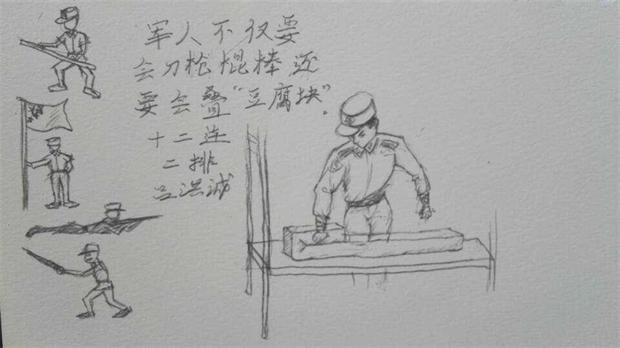 军人不仅要
会刀枪棍棒还
要会叠“豆腐块”
十二连
二排
吕洪诚